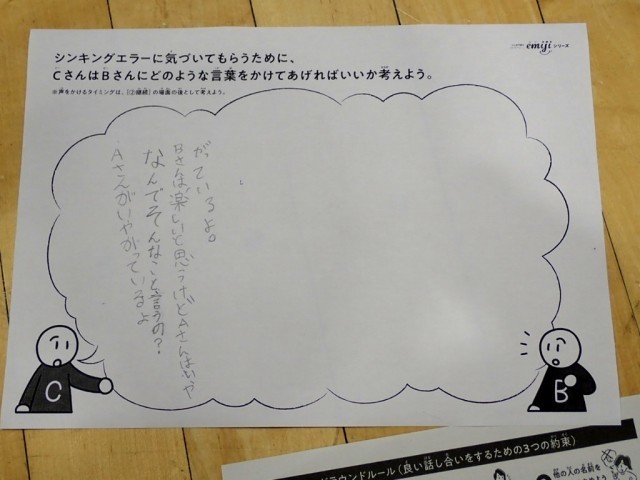 emiji シリーズ
シンキングエラーに気づいてもらうために、
CさんはBさんにどのような言葉をかけてあげればいいか考えよう。
※声をかけるタイミングは、[③継続] の場面の後として考えよう。
Aさんがいやがっているよ
なんでそんなこと言うの?
Bさんは楽しいと思うけどAさんはいや
がっているよ。
C
B
ラウンドルール(良い話し合いをするための3つの約束)
の人の名前を